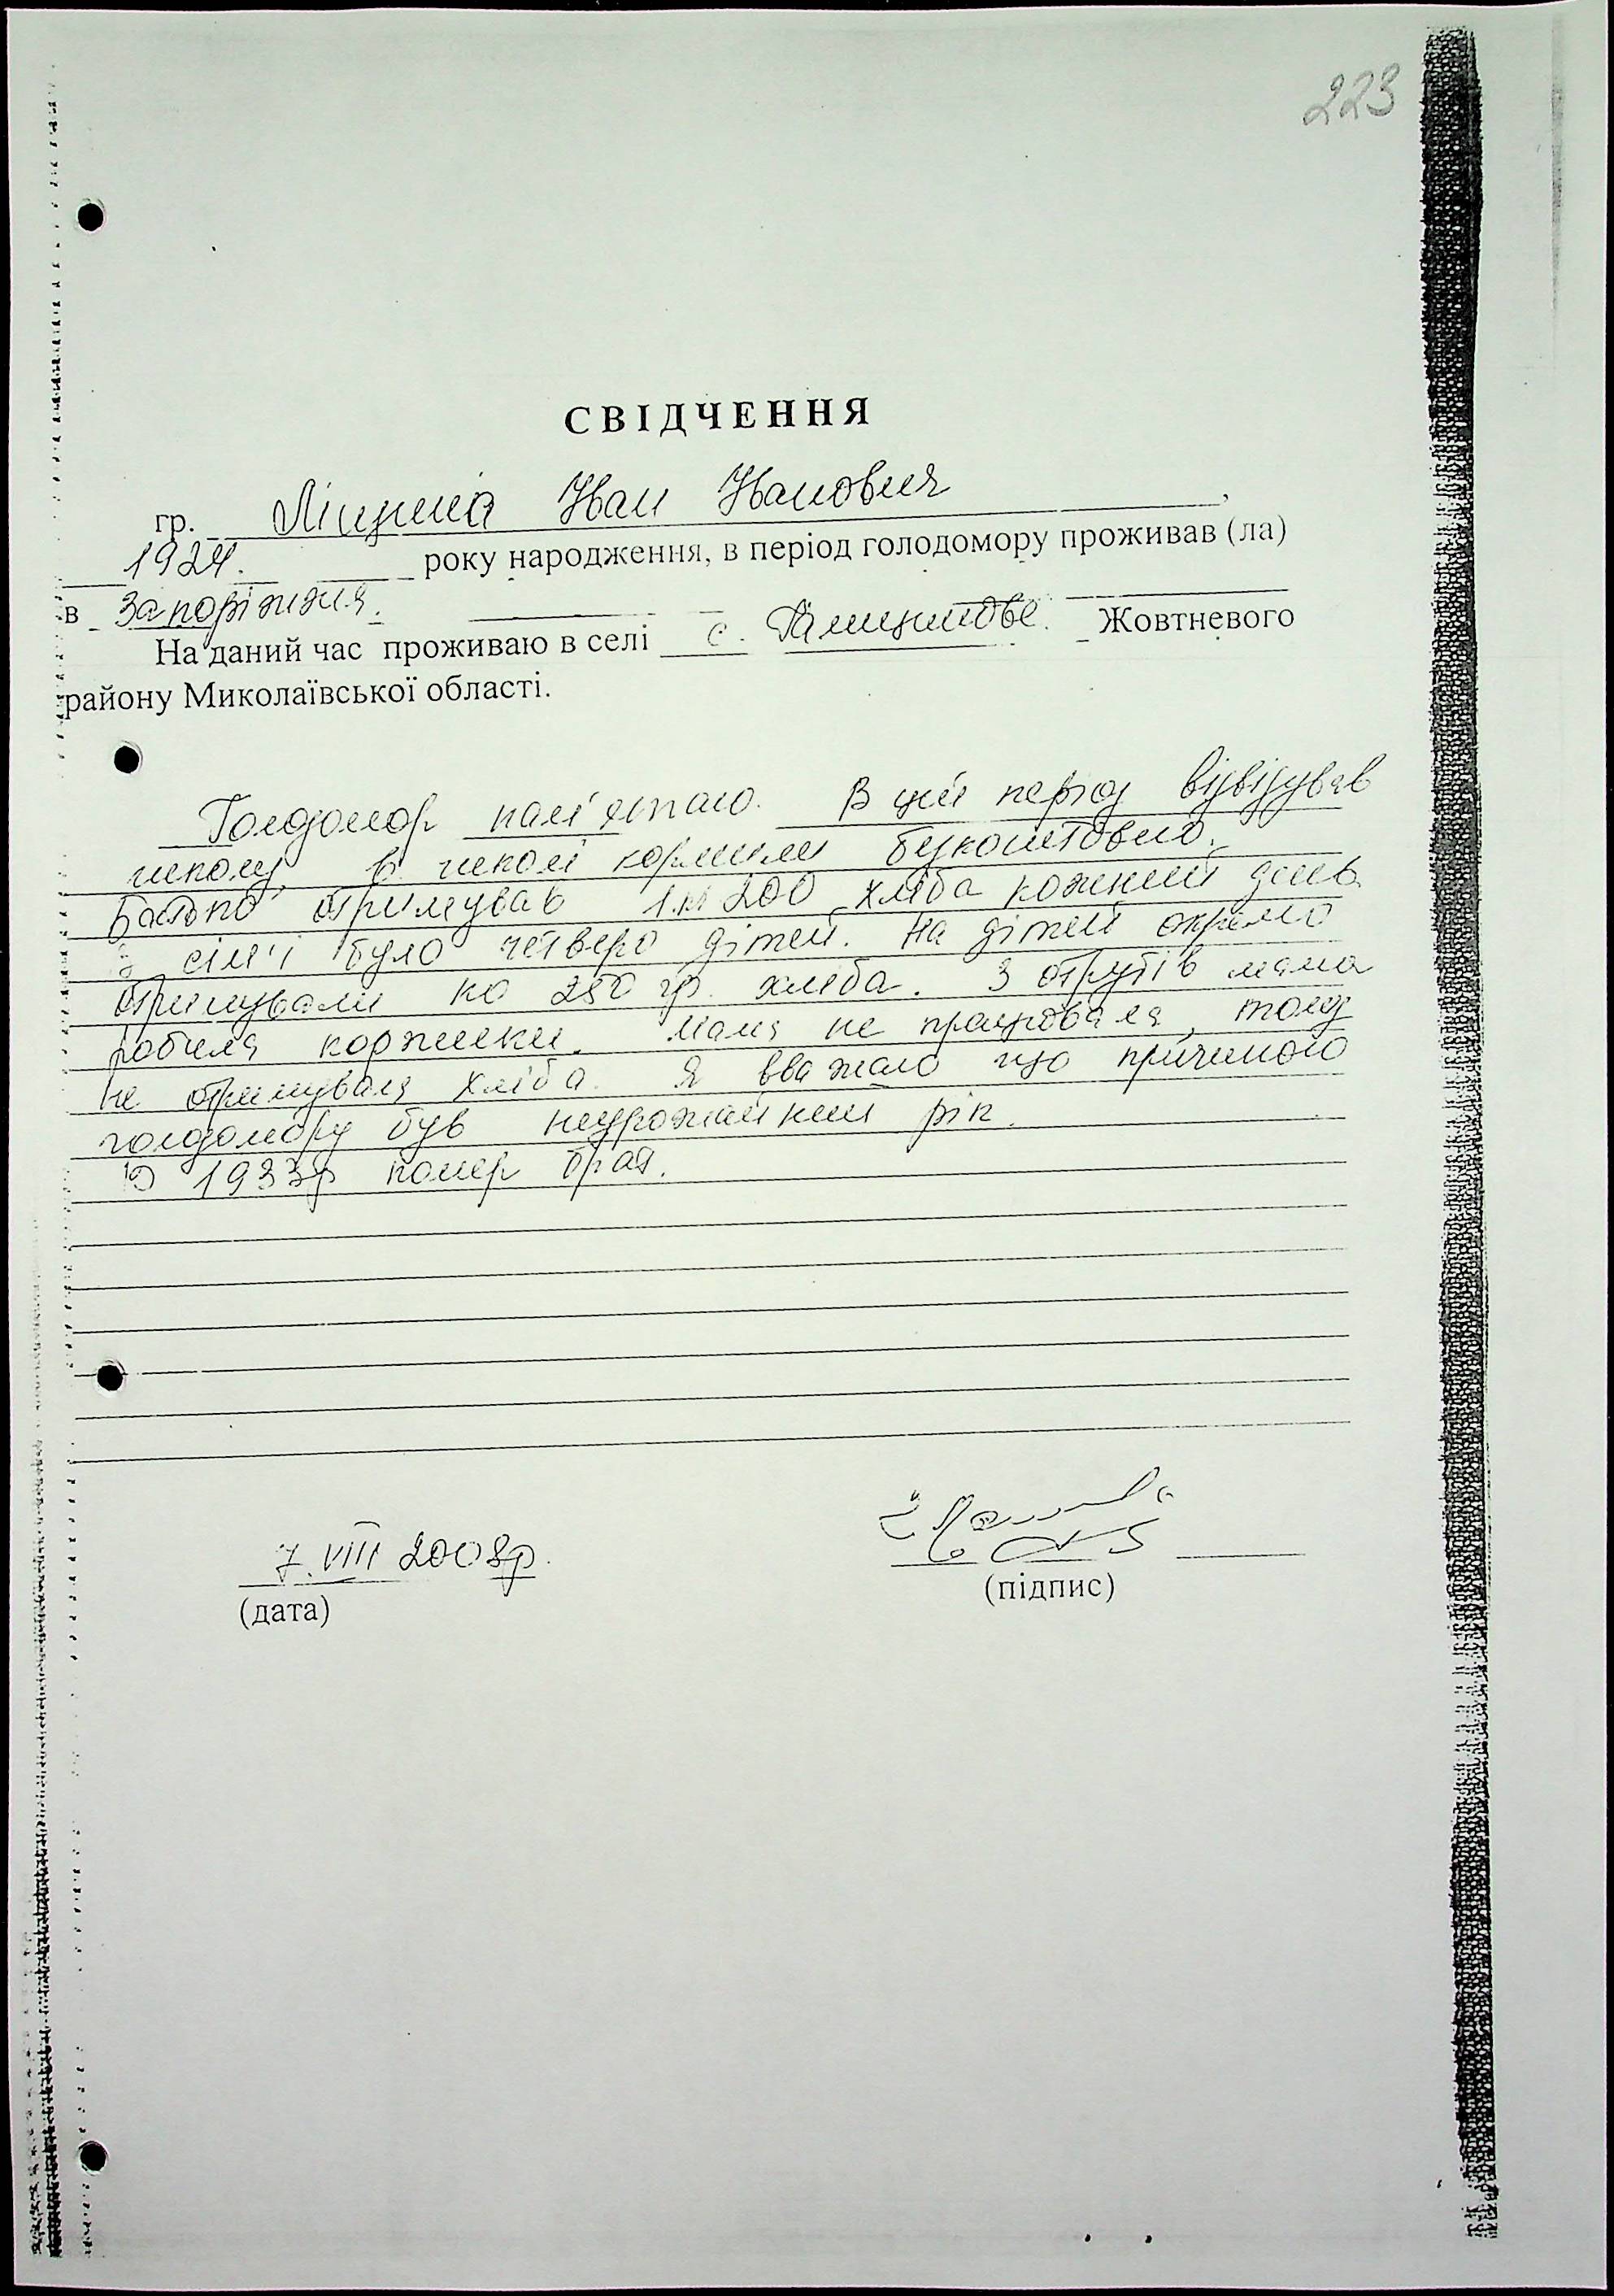 223
СВІДЧЕННЯ
гр. Ліцина Іван Іванович,
1924. року народження, в період голодомору проживав (ла)
в Запоріжжя.
На даний час проживаю в селі с. Галицинове. Жовтневого
району Миколаївської області.
Голодомор пам'ятаю. В цей період відвідував
школу, в школі кормили безкоштовно.
Батько отримував 1 кг 200 хліба кожний день
сім'ї було четверо дітей. На дітей окремо
отримували по 250 гр. хліба. З отрубів мама
робила коржики. Мама не працювала, тому
не отримувала хліба. Я вважаю що причиною
голодомору був неурожайний рік.
В 1933р помер брат.
7.VIII 2008р.
(дата)
(підпис)